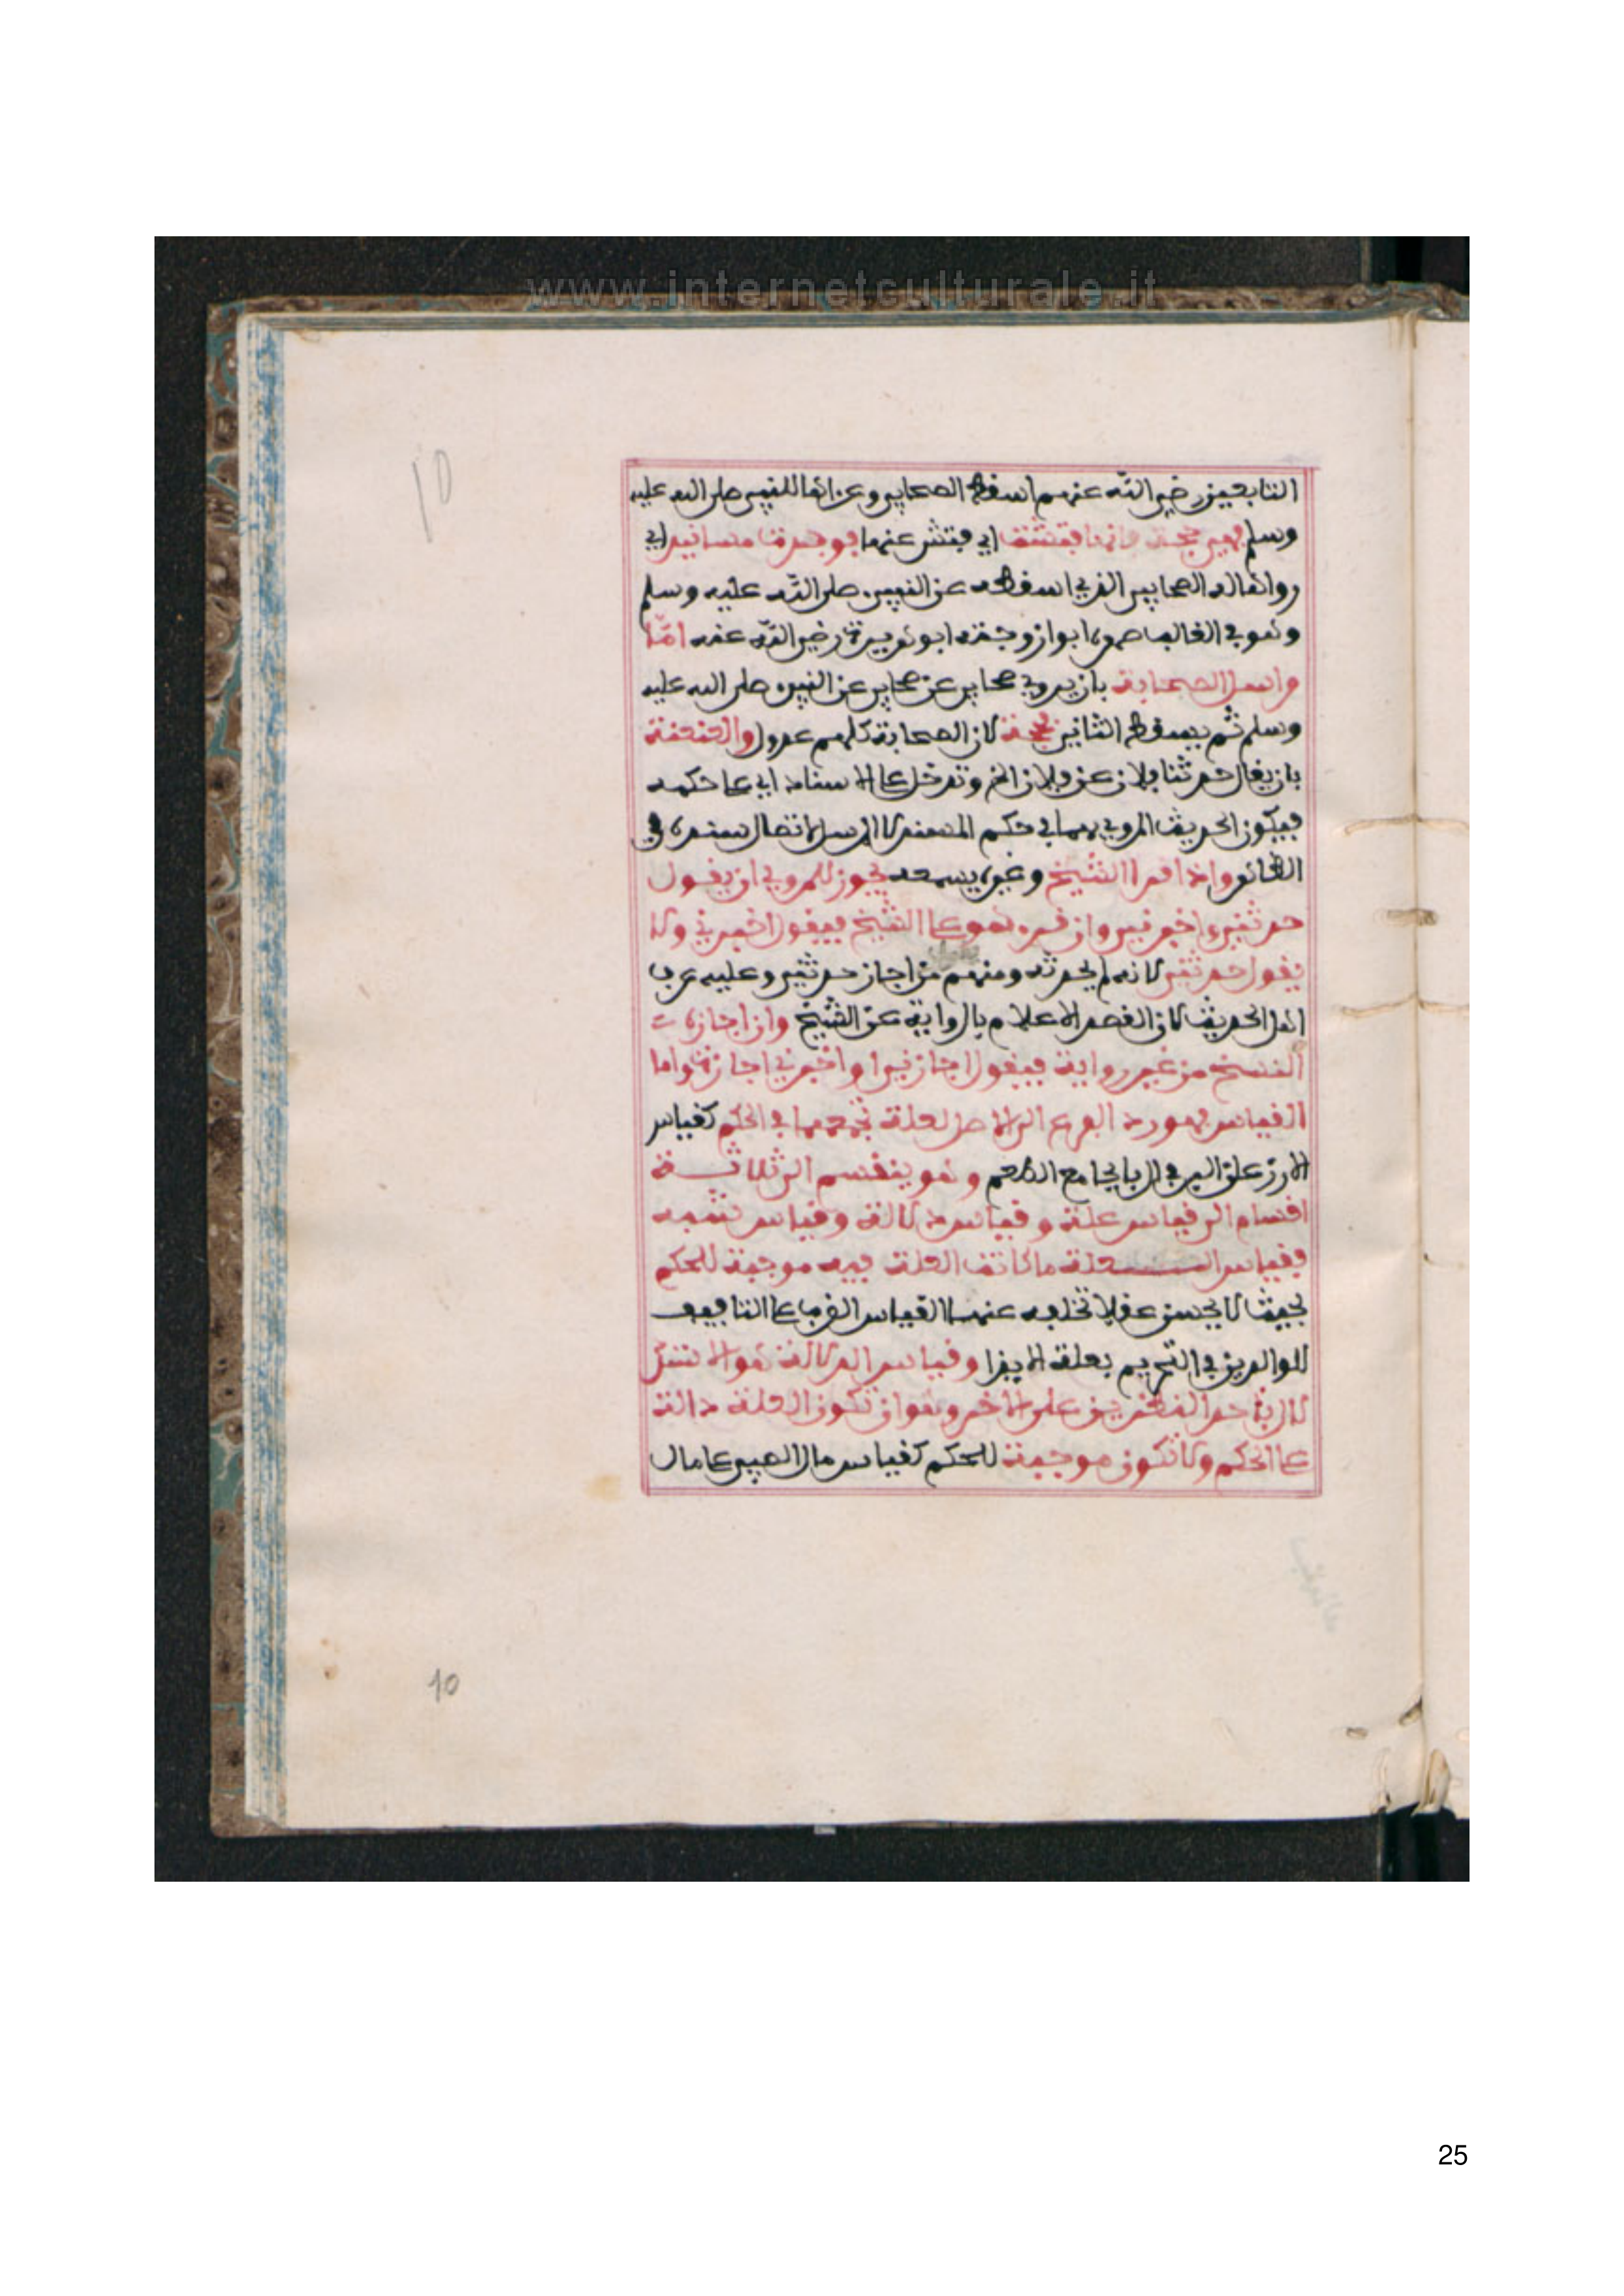 www.internetculturale.it
10
التابعين رضي الله عنهم اسقط الصحابي وعزاها للنبي صلى الله عليه
وسلم فهي حجة فانها فتشت اي فتش عنها فوجدت مسانيد اي
رواها له الصحابي الذي اسقطه عن النبي صلى الله عليه وسلم
وهو في الغالب صهره ابو زوجته ابو هريرة رضي الله عنه امّا
مراسل الصحابة بان يروي صحابي عن صحابي عن النبي صلى الله عليه
وسلم ثم يسقط الثاني فحجة لان الصحابة كلهم عدول والعنعنة
بان يقال حدثنا فلان عن فلان الخ وتدخل على الاسناد اي على حكمه
فيكون الحديث المروي بهما في حكم المسند لا المرسل لاتصال سنده في
الظاهر واذا قرا الشيخ وغيره يسمعه يجوز للمروي ان يقول
حدثني واخبرني وان قرء هو على الشيخ فيقول اخبرني ولا
يقول حدثني لانه لم يحدثه ومنهم من اجاز حدثني وعليه عرف
اهل الحديث لان القصد الاعلام بالرواية عن الشيخ وان اجازه
الشيخ من غير رواية فيقول اجازني او اخبرني اجازة واما
القياس فهو رد الفرع الى الاصل لعلة تجمعهما في الحكم كقياس
الارز على البر في الربا بجامع الطعم وهو ينقسم الى ثلاثة
اقسام الى قياس علة وقياس دلالة وقياس شبه
فقياس العلة ما كانت العلة فيه موجبة للحكم
بحيث لا يحسن عقلا تخلفه عنها القياس الضرب على التافيف
للوالدين في التحريم بعلة الايذا وقياس الدلالة هو الاستدلال
باحد النظيرين على الاخر وهو ان تكون العلة دالة
على الحكم ولا تكون موجبة للحكم كقياس مال الصبي على مال
10
25